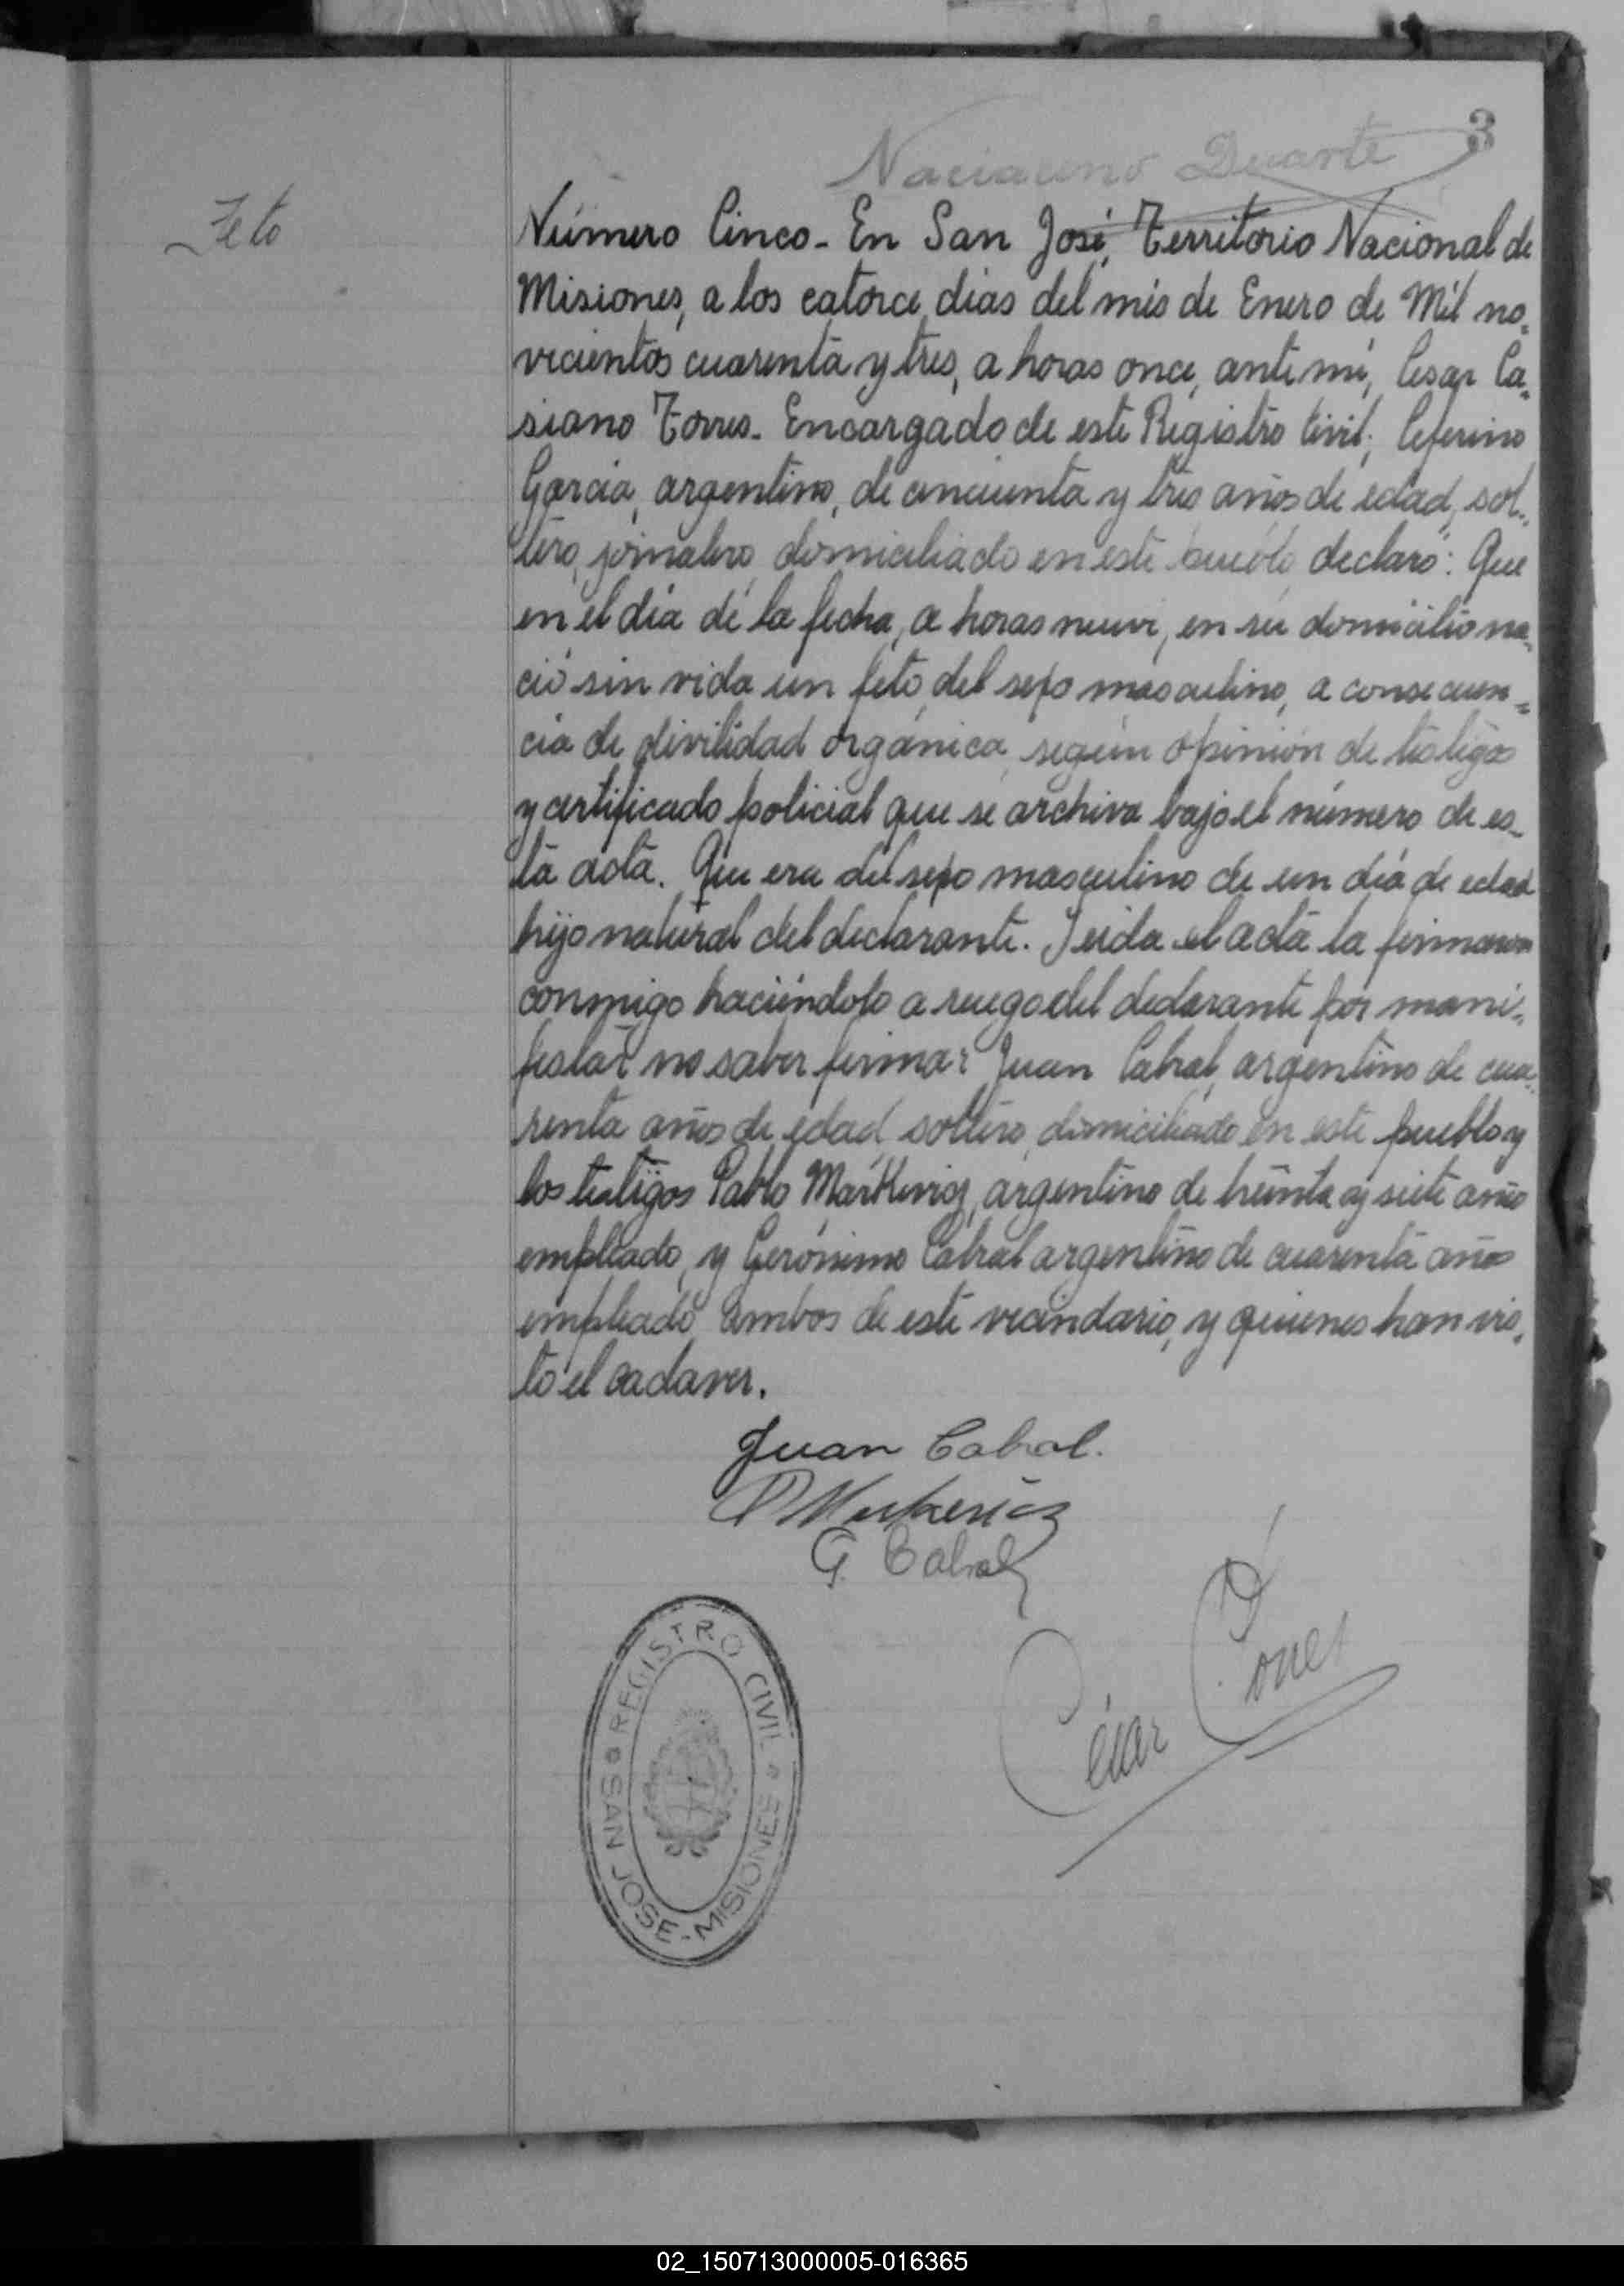 3
Duarte
Feto
Número Cinco - En San José, Territorio Nacional de
Misiones, a los catorce dias del mes de Enero de Mil no=
vecientos cuarenta y tres, a horas once, ante mi, Cesar Ca=
siano Torres - Encargado de este Registro Civil; Ceferino
Garcia, argentino, de cincuenta y tres años de edad, sol=
tero, jornalero, domiciliado en este pueblo declaró: Que
en el día de la fecha, a horas nueve, en su domicilio na=
ció sin vida un feto, del sexo masculino, a consecuen=
cia de divilidad orgánica, según opinión de testigos
y certificado policial que se archiva bajo el número de es=
ta acta. Que era del sexo masculino de un día de edad
hijo natural del declarante. Leida el acta la firmaron
conmigo haciéndolo a ruego del declarante por mani=
festar no saber firmar Juan Cabral, argentino de cua=
renta años de edad, soltero, domiciliado en este pueblo y
los testigos Pablo Markevicz, argentino de treinta y siete años
empleado, y Gerónimo Cabral argentino de cuarenta años
empleado, ambos de este vecindario, y quienes han vis=
to el cadaver.
Juan Cabral.
P Markevicz
G. Cabral
César C. Torres
REGISTRO CIVIL
SAN JOSE - MISIONES
02_150713000005-016365